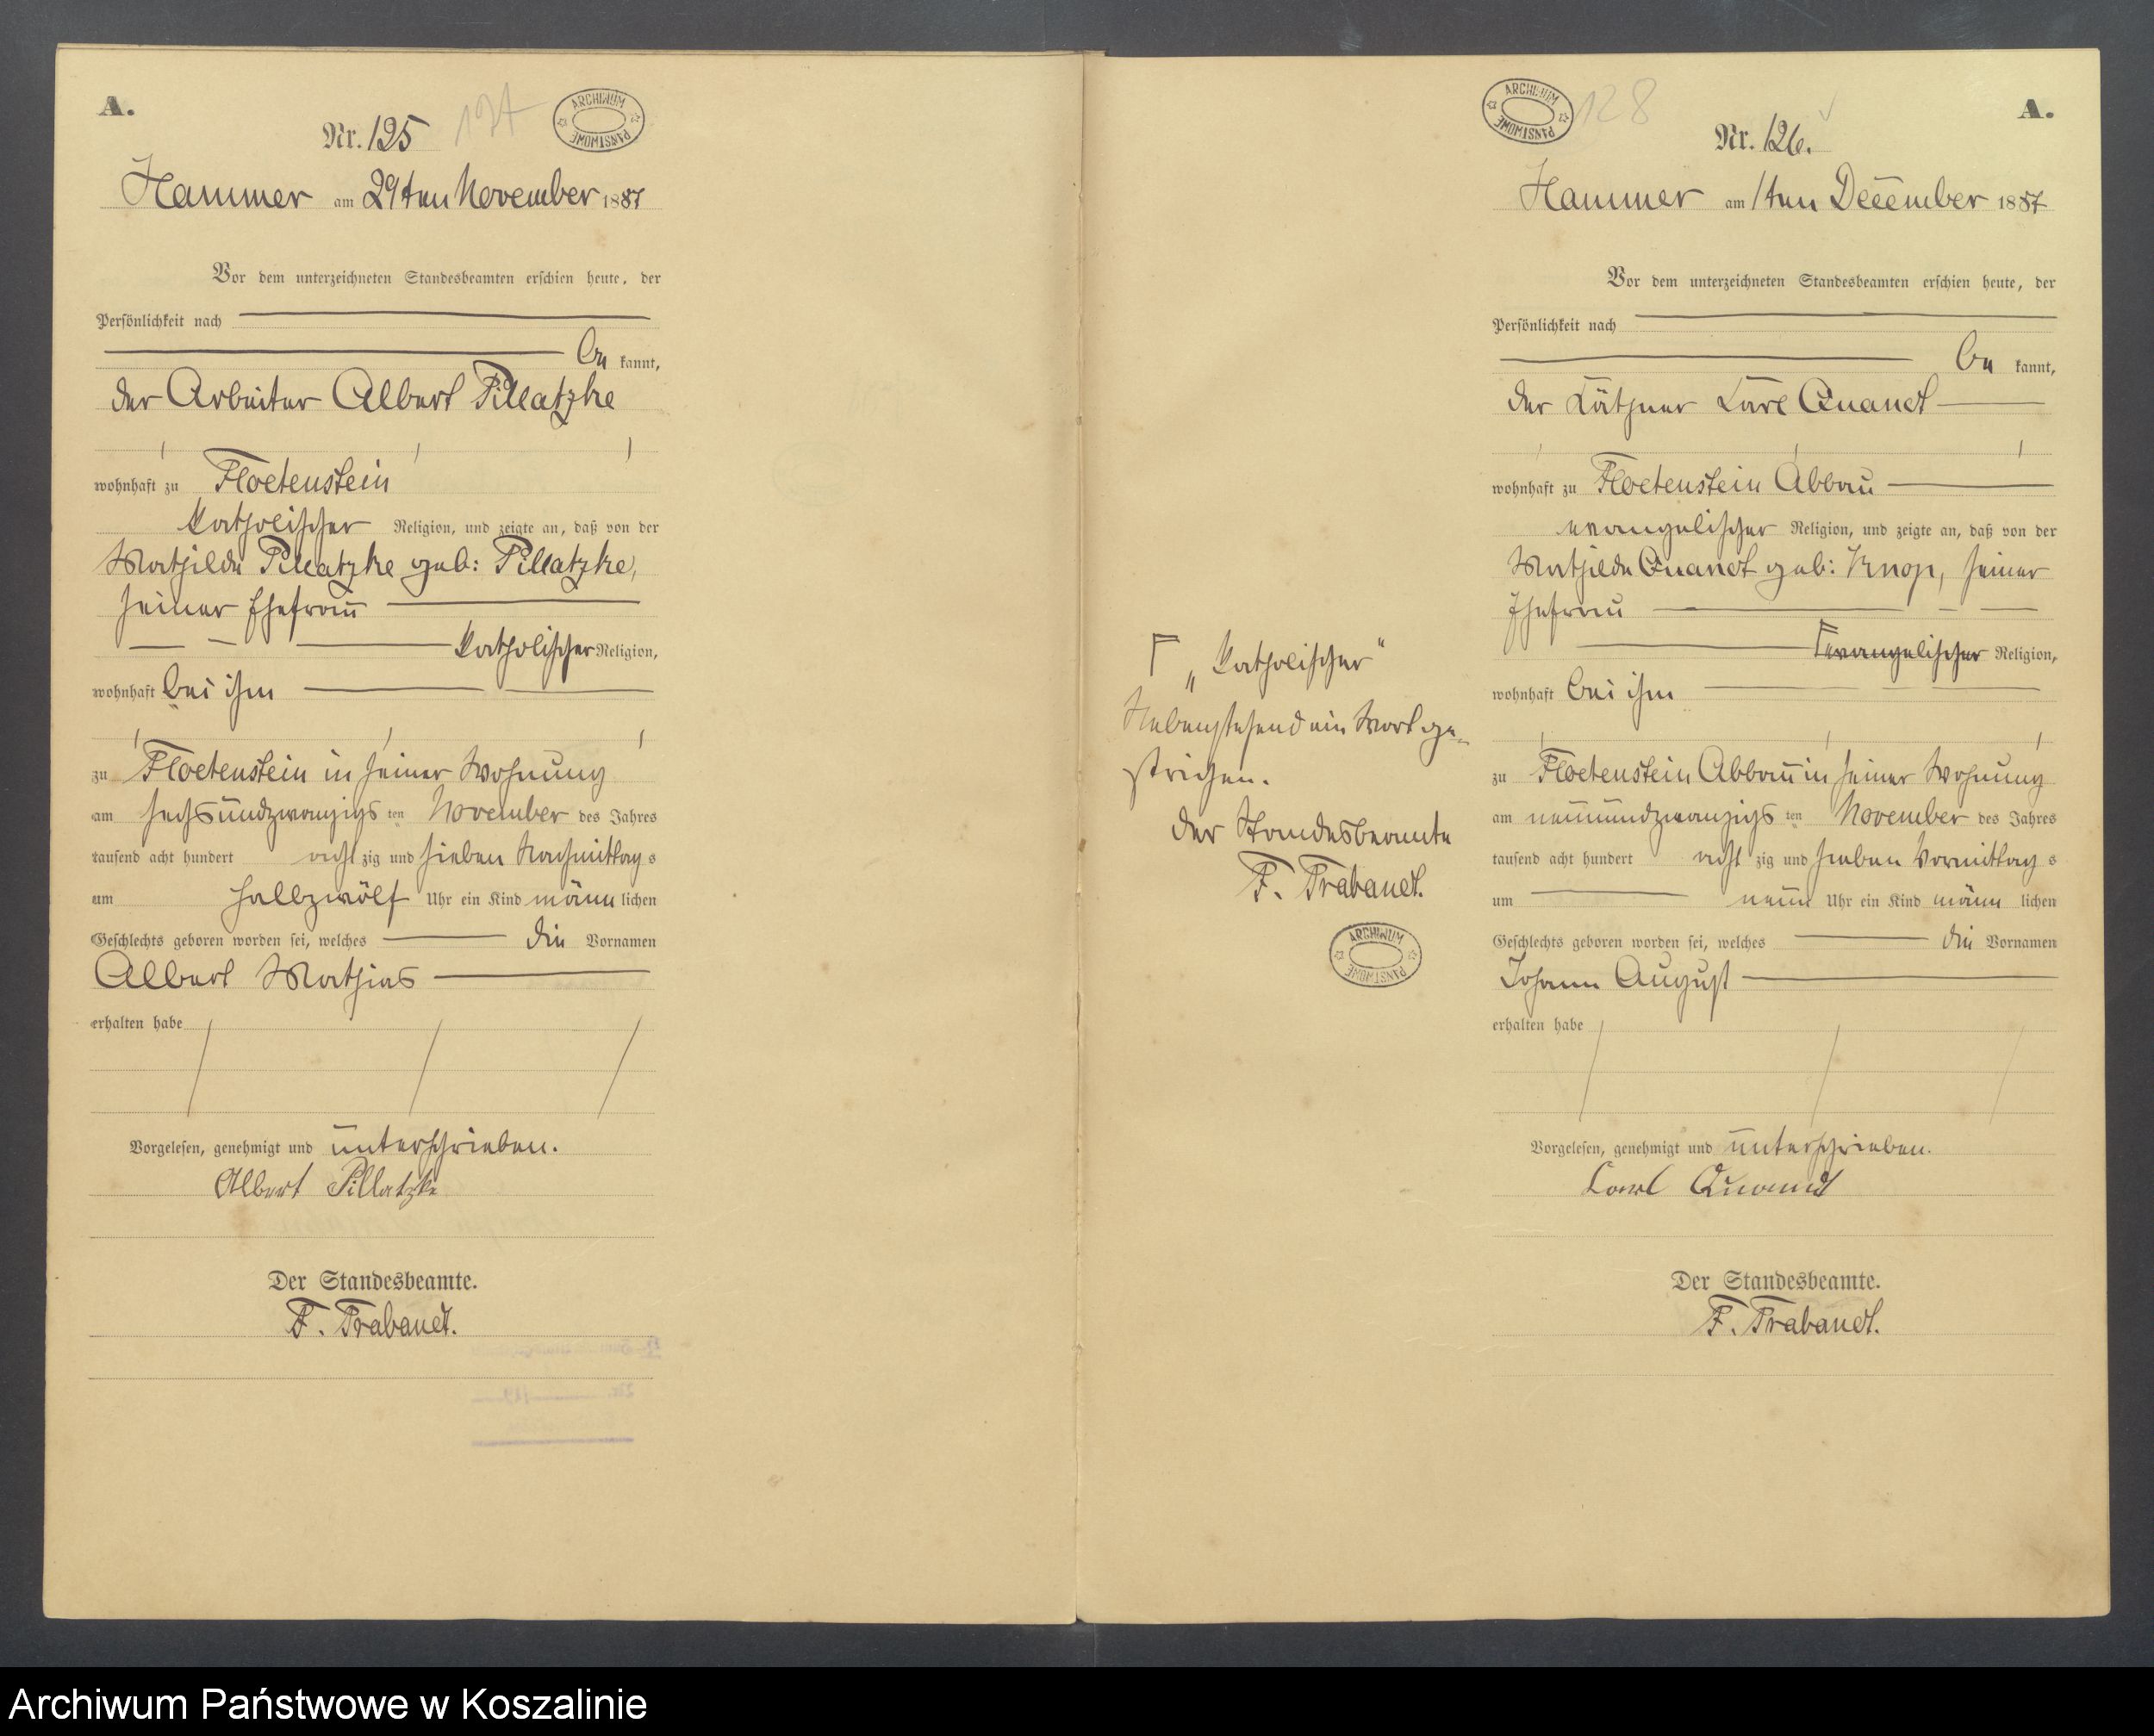 A.
Nr. 125
127
ARCHIWUM PAŃSTWOWE
Hammer am 29ten November 1887
Vor dem unterzeichneten Standesbeamten erschien heute, der
Persönlichkeit nach
be kannt,
der Arbeiter Albert Pillatzke
wohnhaft zu Floetenstein
katholischer Religion, und zeigte an, daß von der
Mathilde Pillatzke geb: Pillatzke,
seiner Ehefrau
katholischer Religion,
wohnhaft bei ihm
zu Floetenstein in seiner Wohnung
am sechsundzwanzigs ten November des Jahres
tausend acht hundert acht zig und sieben Nachmittag s
um halbzwölf Uhr ein Kind männ lichen
Geschlechts geboren worden sei, welches die Vornamen
Albert Mathias
erhalten habe
Vorgelesen, genehmigt und unterschrieben.
Albert Pillatzke
Der Standesbeamte.
F. Trabandt.
ARCHIWUM PAŃSTWOWE
128
A.
Nr. 126.
Hammer am 1ten December 1887
Vor dem unterzeichneten Standesbeamten erschien heute, der
Persönlichkeit nach
be kannt,
der Käthner Carl Quandt
wohnhaft zu Floetenstein Abbau
evangelischer Religion, und zeigte an, daß von der
Mathilde Quandt geb: Knop, seiner
Ehefrau
evangelischer Religion,
wohnhaft bei ihm
zu Floetenstein Abbau in seiner Wohnung
am neunundzwanzigs ten November des Jahres
tausend acht hundert acht zig und sieben Vormittag s
um neun Uhr ein Kind männ lichen
Geschlechts geboren worden sei, welches die Vornamen
Johann August
erhalten habe
Vorgelesen, genehmigt und unterschrieben.
Carl Quandt
Der Standesbeamte.
F. Trabandt.
„katholischer"
Nebenstehend ein Wort ge-
strichen.
Der Standesbeamte
F. Trabandt.
ARCHIWUM PAŃSTWOWE
Archiwum Państwowe w Koszalinie